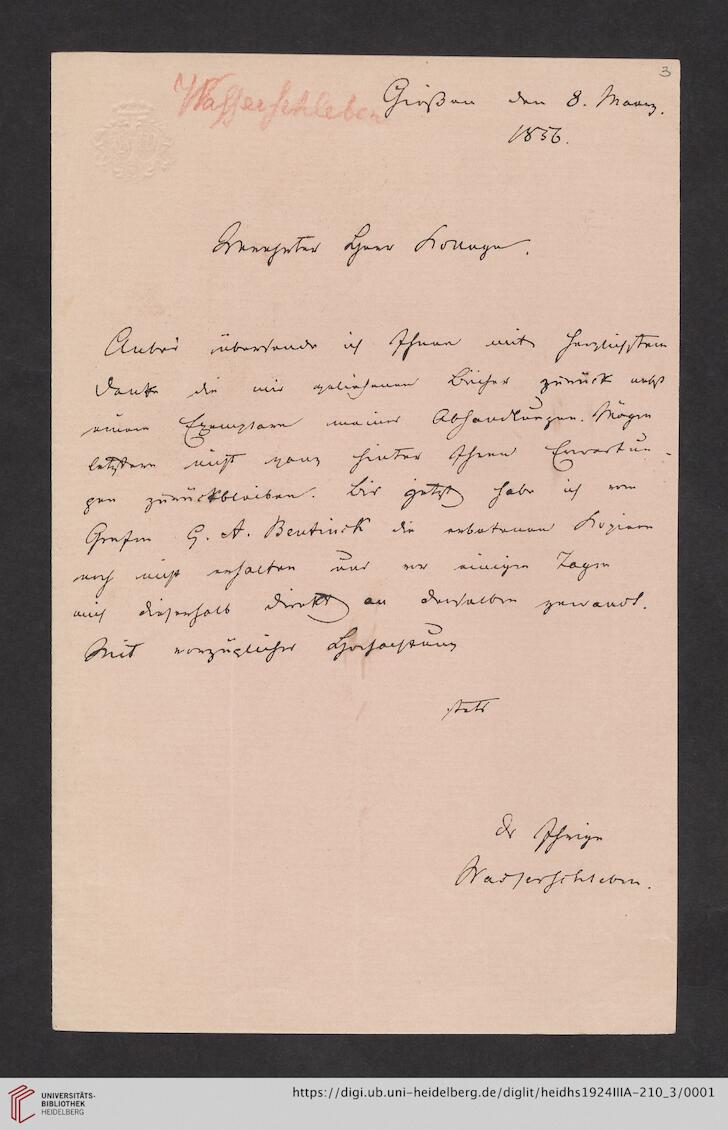 3
Wasserschleben
Gießen den 8. Maerz.
1856.
Verehrter Herr Kollege.
Anbei übersende ich Ihnen mit herzlichstem
Danke die mir geliehenen Bücher zurück nebst
einem Exemplare meiner Abhandlungen. Mögen
letztere nicht ganz hinter Ihren Erwartun-
gen zurückbleiben. Bis jetzt habe ich vom
Grafen G. A. Bentinck die erbetenen Kopieen
noch nicht erhalten und vor einigen Tagen
mich dieserhalb direkt an denselben gewandt.
Mit vorzüglicher Hochachtung
stets
der Ihrige
Wasserschleben.
UNIVERSITÄTS-
BIBLIOTHEK
HEIDELBERG
https://digi.ub.uni-heidelberg.de/diglit/heidhs1924IIIA-210_3/0001